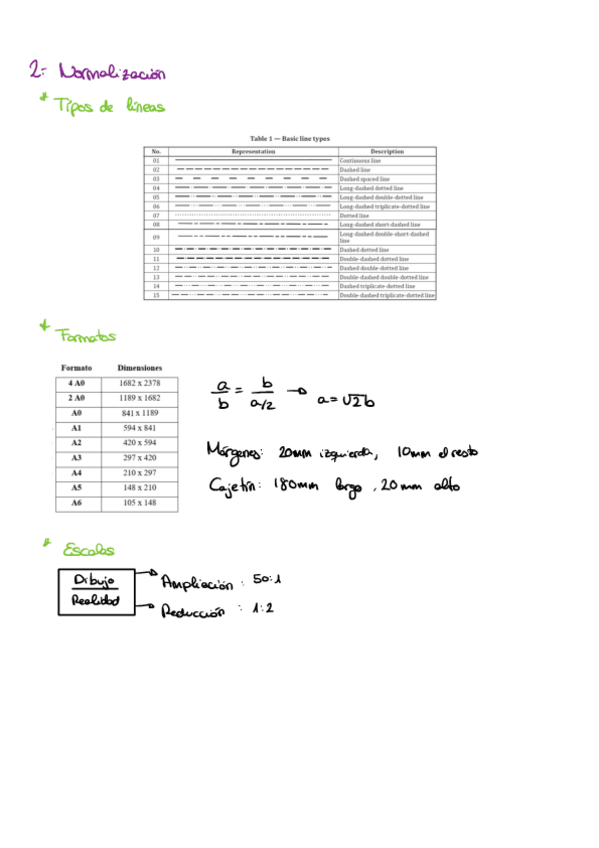 2: Normalización
* Tipos de líneas
Table 1 — Basic line types
No. Representation Description
01 Continuous line
02 Dashed line
03 Dashed spaced line
04 Long-dashed dotted line
05 Long-dashed double-dotted line
06 Long-dashed triplicate-dotted line
07 Dotted line
08 Long-dashed short-dashed line
09 Long-dashed double-short-dashed
line
10 Dashed dotted line
11 Double-dashed dotted line
12 Dashed double-dotted line
13 Double-dashed double-dotted line
14 Dashed triplicate-dotted line
15 Double-dashed triplicate-dotted line
* Formatos
Formato Dimensiones
4 A0 1682 x 2378
2 A0 1189 x 1682
A0 841 x 1189
A1 594 x 841
A2 420 x 594
A3 297 x 420
A4 210 x 297
A5 148 x 210
A6 105 x 148
a/b = b/a/2 → a = √2b
Márgenes: 20mm izquierda, 10mm el resto
Cajetín: 180mm largo, 20mm alto
* Escalas
Dibujo
Realidad
Ampliación : 50:1
Reducción : 1:2